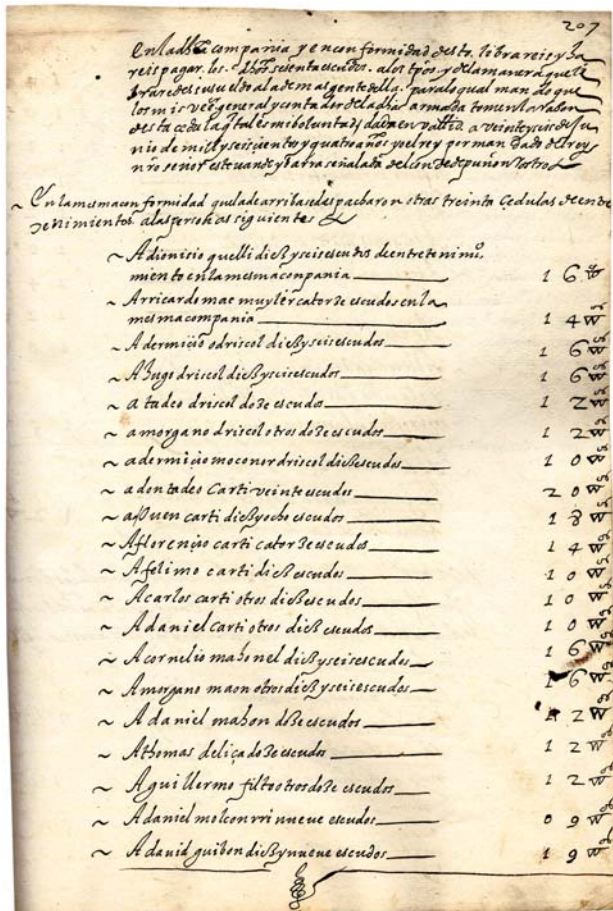 207
En la dha compania y en conformidad desto. librareis y ha
reis pagar. los. dhos sesenta escudos. a los tpos. y de la manera que se
librare de su sueldo a la demas gente della. para lo qual mando que
los mis veedor general y contador de la dha armada tomen la razon
desta cedula q tal es mi boluntad dada en vallid. a veinte y seis de ju
nio de mill y seiscientos y quatro años yo el rey por mandado del rey
nro señor estevan de ybarra señalada del conde de puñonrostro
~ En la mesma conformidad que la de arriba se despacharon otras treinta cedulas de entre
tenimientos a las personas siguientes
~ A dionisio quelli diez y seis escudos de entretenimo.
miento en la mesma compania 16
~ A rricardo mac muyler catorze escudos en la
mesma compania 14
~ A dermiçio odriscol diez y seis escudos 16
~ A hugo driscol diez y seis escudos 16
~ a tadeo driscol doze escudos 12
~ a morgano driscol otros doze escudos 12
~ a dermiçio moconor driscol diez escudos 10
~ a don tadeo carti veinte escudos 20
~ a Puen carti diez y ocho escudos 18
~ A florençio carti catorze escudos 14
~ A felimo carti diez escudos 10
~ A carlos carti otros diez escudos 10
~ A daniel carti otros diez escudos 10
~ A cornelio mahonel diez y seis escudos 16
~ A morgano maon otros diez y seis escudos 16
~ A daniel mahon doze escudos 12
~ A thomas deliça doze escudos 12
~ A guillermo filt otros doze escudos 12
~ A daniel molconrri nueve escudos 09
~ A david guibon diez y nueve escudos 19